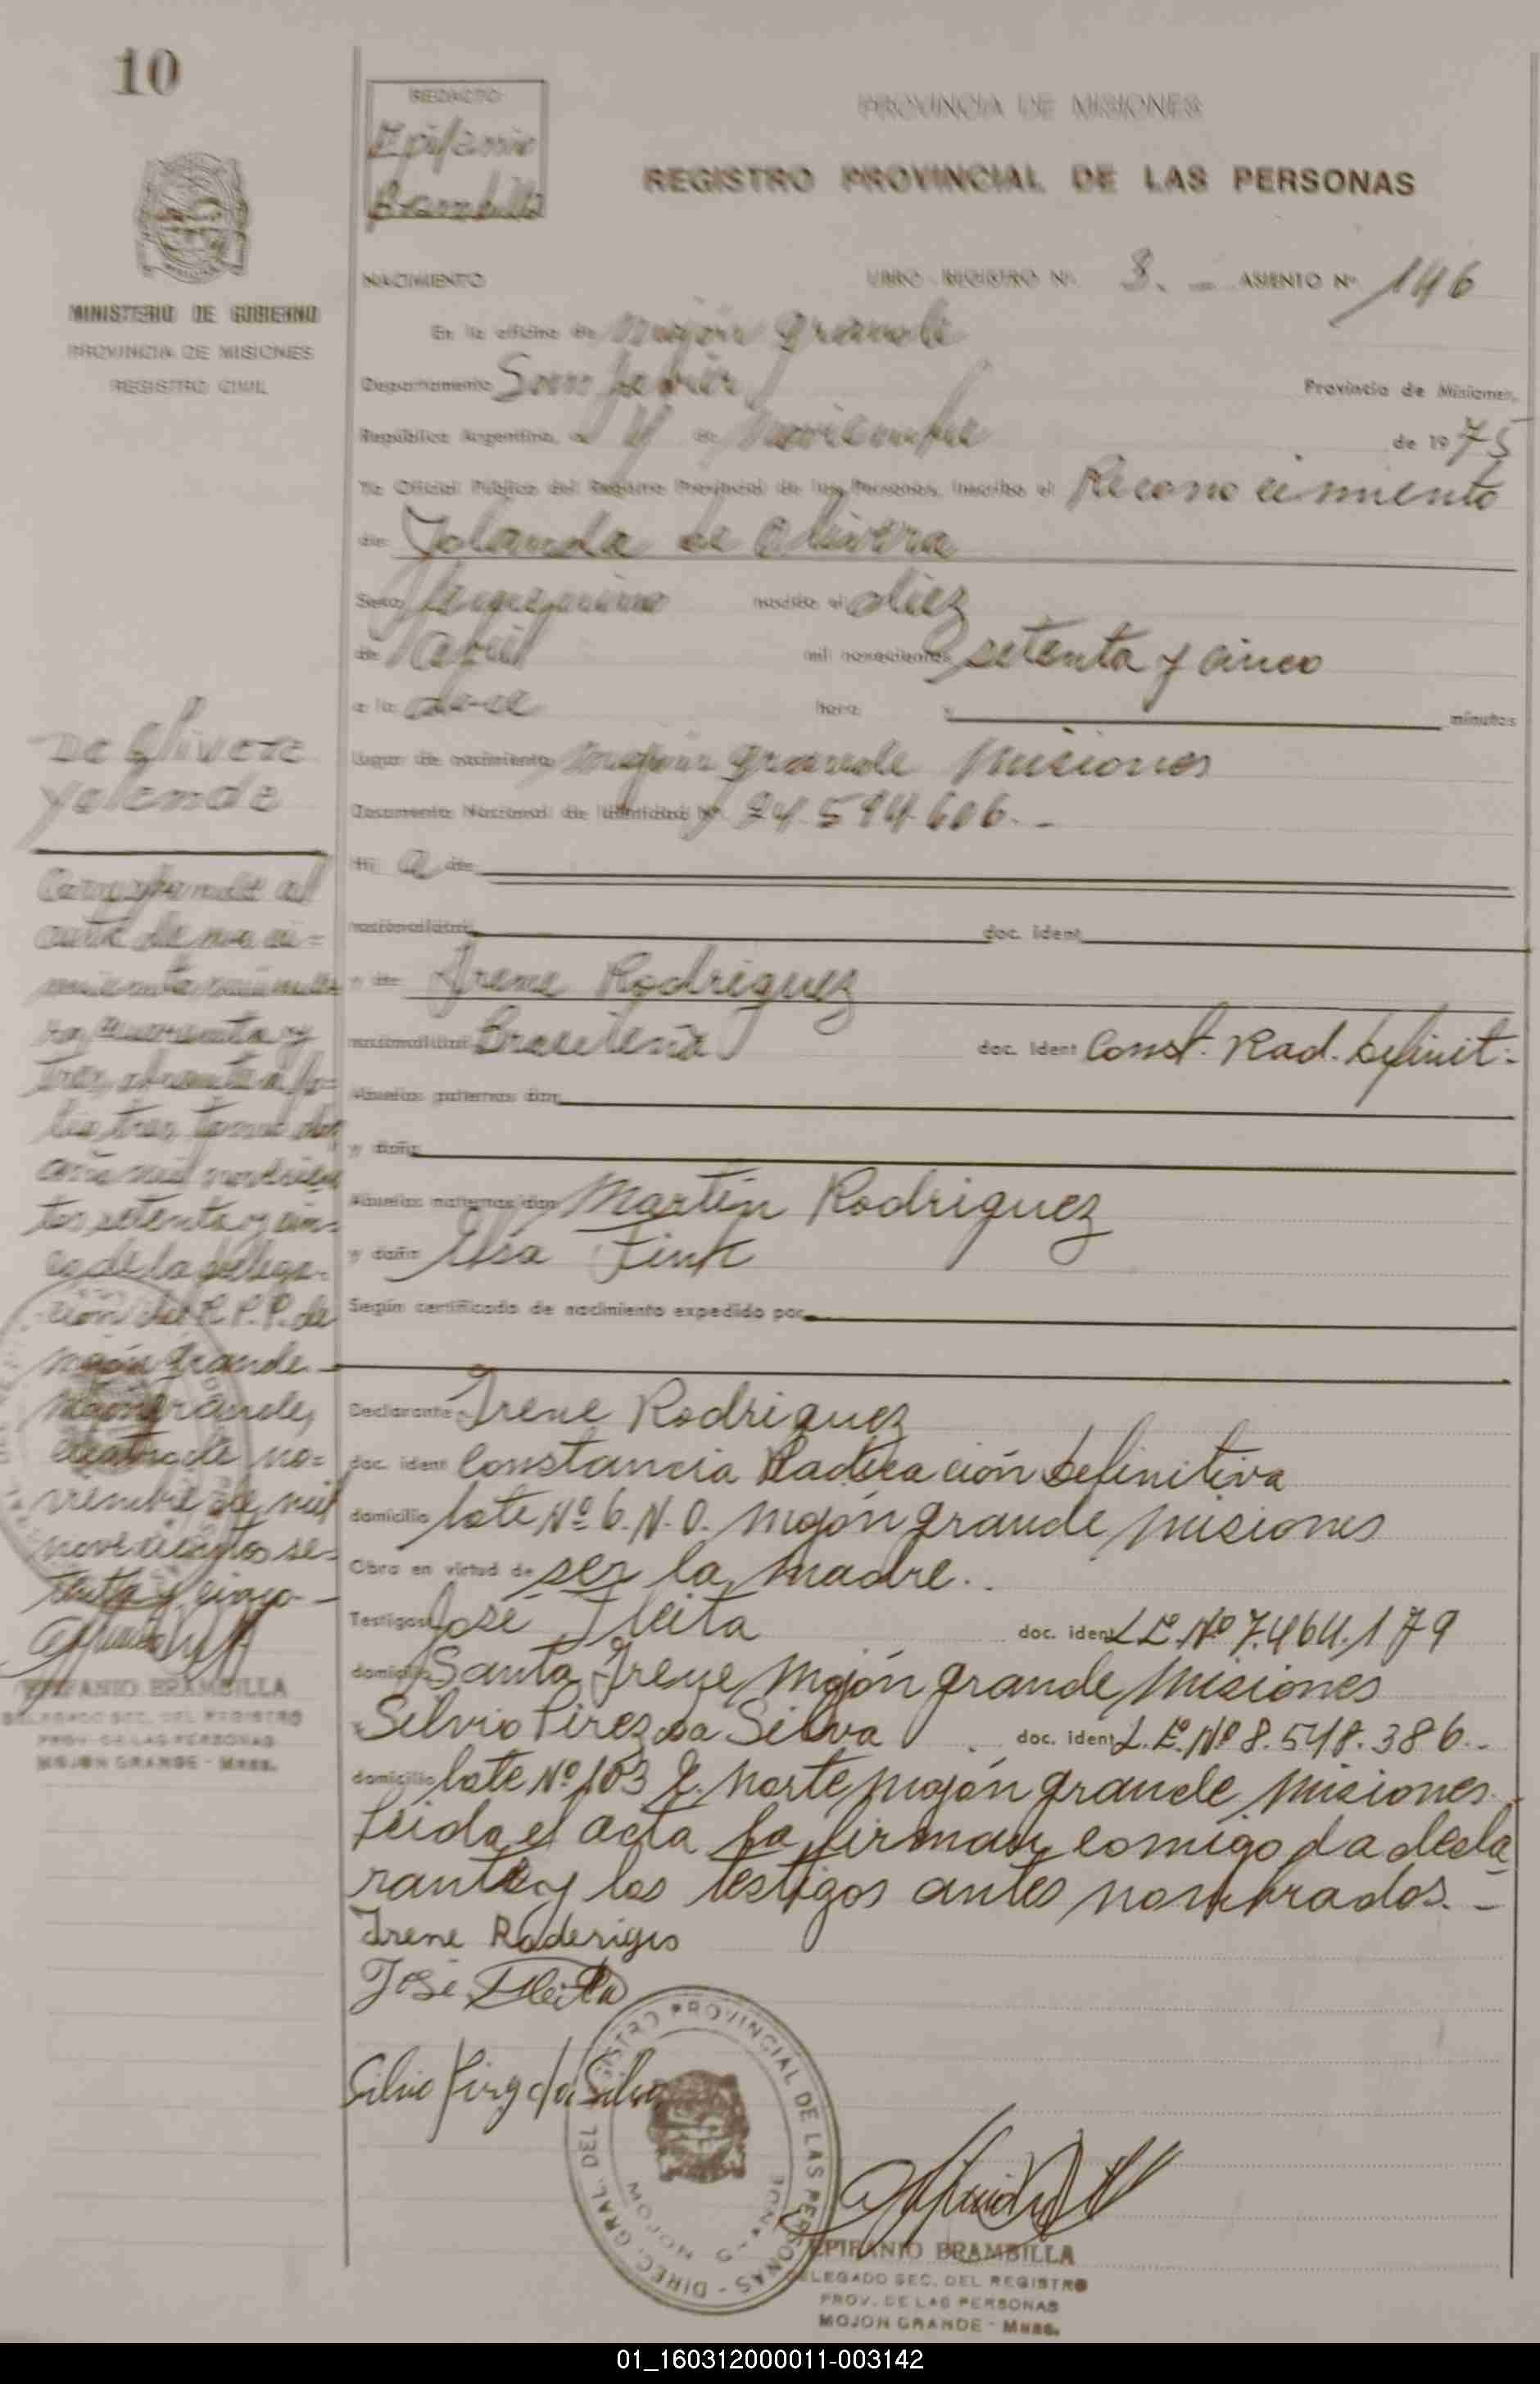 10
REDACTO
Epifanio
Brambilla
PROVINCIA DE MISIONES
REGISTRO PROVINCIAL DE LAS PERSONAS
MINISTERIO DE GOBIERNO
PROVINCIA DE MISIONES
REGISTRO CIVIL
NACIMIENTO LIBRO - REGISTRO Nº 3. - ASIENTO Nº 146
En la oficina de Mojón grande
Departamento San Javier Provincia de Misiones,
República Argentina, a 4 de Noviembre de 1975
Yo Oficial Público del Registro Provincial de las Personas, inscribo el Reconocimiento
de Yolanda de Olivera
Sexo femenino nacido el diez
de Abril mil novecientos setenta y cinco
a la doce hora y minutos
Lugar de nacimiento Mojón grande Misiones
Documento Nacional de Identidad Nº 24.594.606. -
Hij a de
nacionalidad doc. ident.
y de Irene Rodriguez
nacionalidad Brasileña doc. ident Const. Rad. Definit:
Abuelos paternos don
y doña
Abuelos maternos don Martín Rodriguez
y doña Elsa Fink
Según certificado de nacimiento expedido por
Declarante Irene Rodriguez
doc. ident Constancia Radicación Definitiva
domicilio lote Nº 6. N. O. Mojón grande Misiones
Obra en virtud de ser la madre.
Testigos José Fleita doc. ident L E. Nº 7.464.179
domicilio Santa Irene Mojón grande Misiones
Silvio Pirez da Silva doc. ident L. E. Nº 8.548.386. -
domicilio lote Nº 103 E. Norte Mojón grande Misiones.
Leida el acta la firman comigo la decla
rante y los testigos antes nombrados. -
Irene Roderigis
José Fleita
Silvio Pirez da Silva
DIREC. GRAL. DEL REGISTRO PROVINCIAL DE LAS PERSONAS -
EPIFANIO BRAMBILLA
DELEGADO SEC. DEL REGISTRO
PROV. DE LAS PERSONAS
MOJON GRANDE - Mnes.
De Olivera
Yolanda
Corresponde al
acta de naci=
miento núme
ro cuarenta y
tres, obrante a fo=
lio tres, tomo dos
año mil novecien
tos setenta y cin=
co de la Delega-
ción del R.P.P. de
Mojón Grande. -
Mojón grande,
cuatro de no=
viembre de mil
novecientos se=
tenta y cinco -
EPIFANIO BRAMBILLA
DELEGADO SEC. DEL REGISTRO
PROV. DE LAS PERSONAS
MOJON GRANDE - Mnes.
01_160312000011-003142